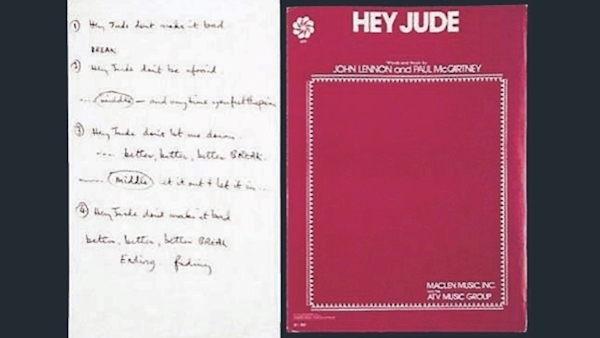 ① Hey Jude dont make it bad
BREAK
② Hey Jude don't be afraid.
middle — and anytime you feel the pain
③ Hey Jude don't let me down
---- better, better, better BREAK.
middle let it out & let it in ...
④ Hey Jude dont make it bad
better, better, better BREAK
Ending fading
HEY JUDE
Words and Music by
JOHN LENNON and PAUL McCARTNEY
MACLEN MUSIC, INC.
ATV MUSIC GROUP